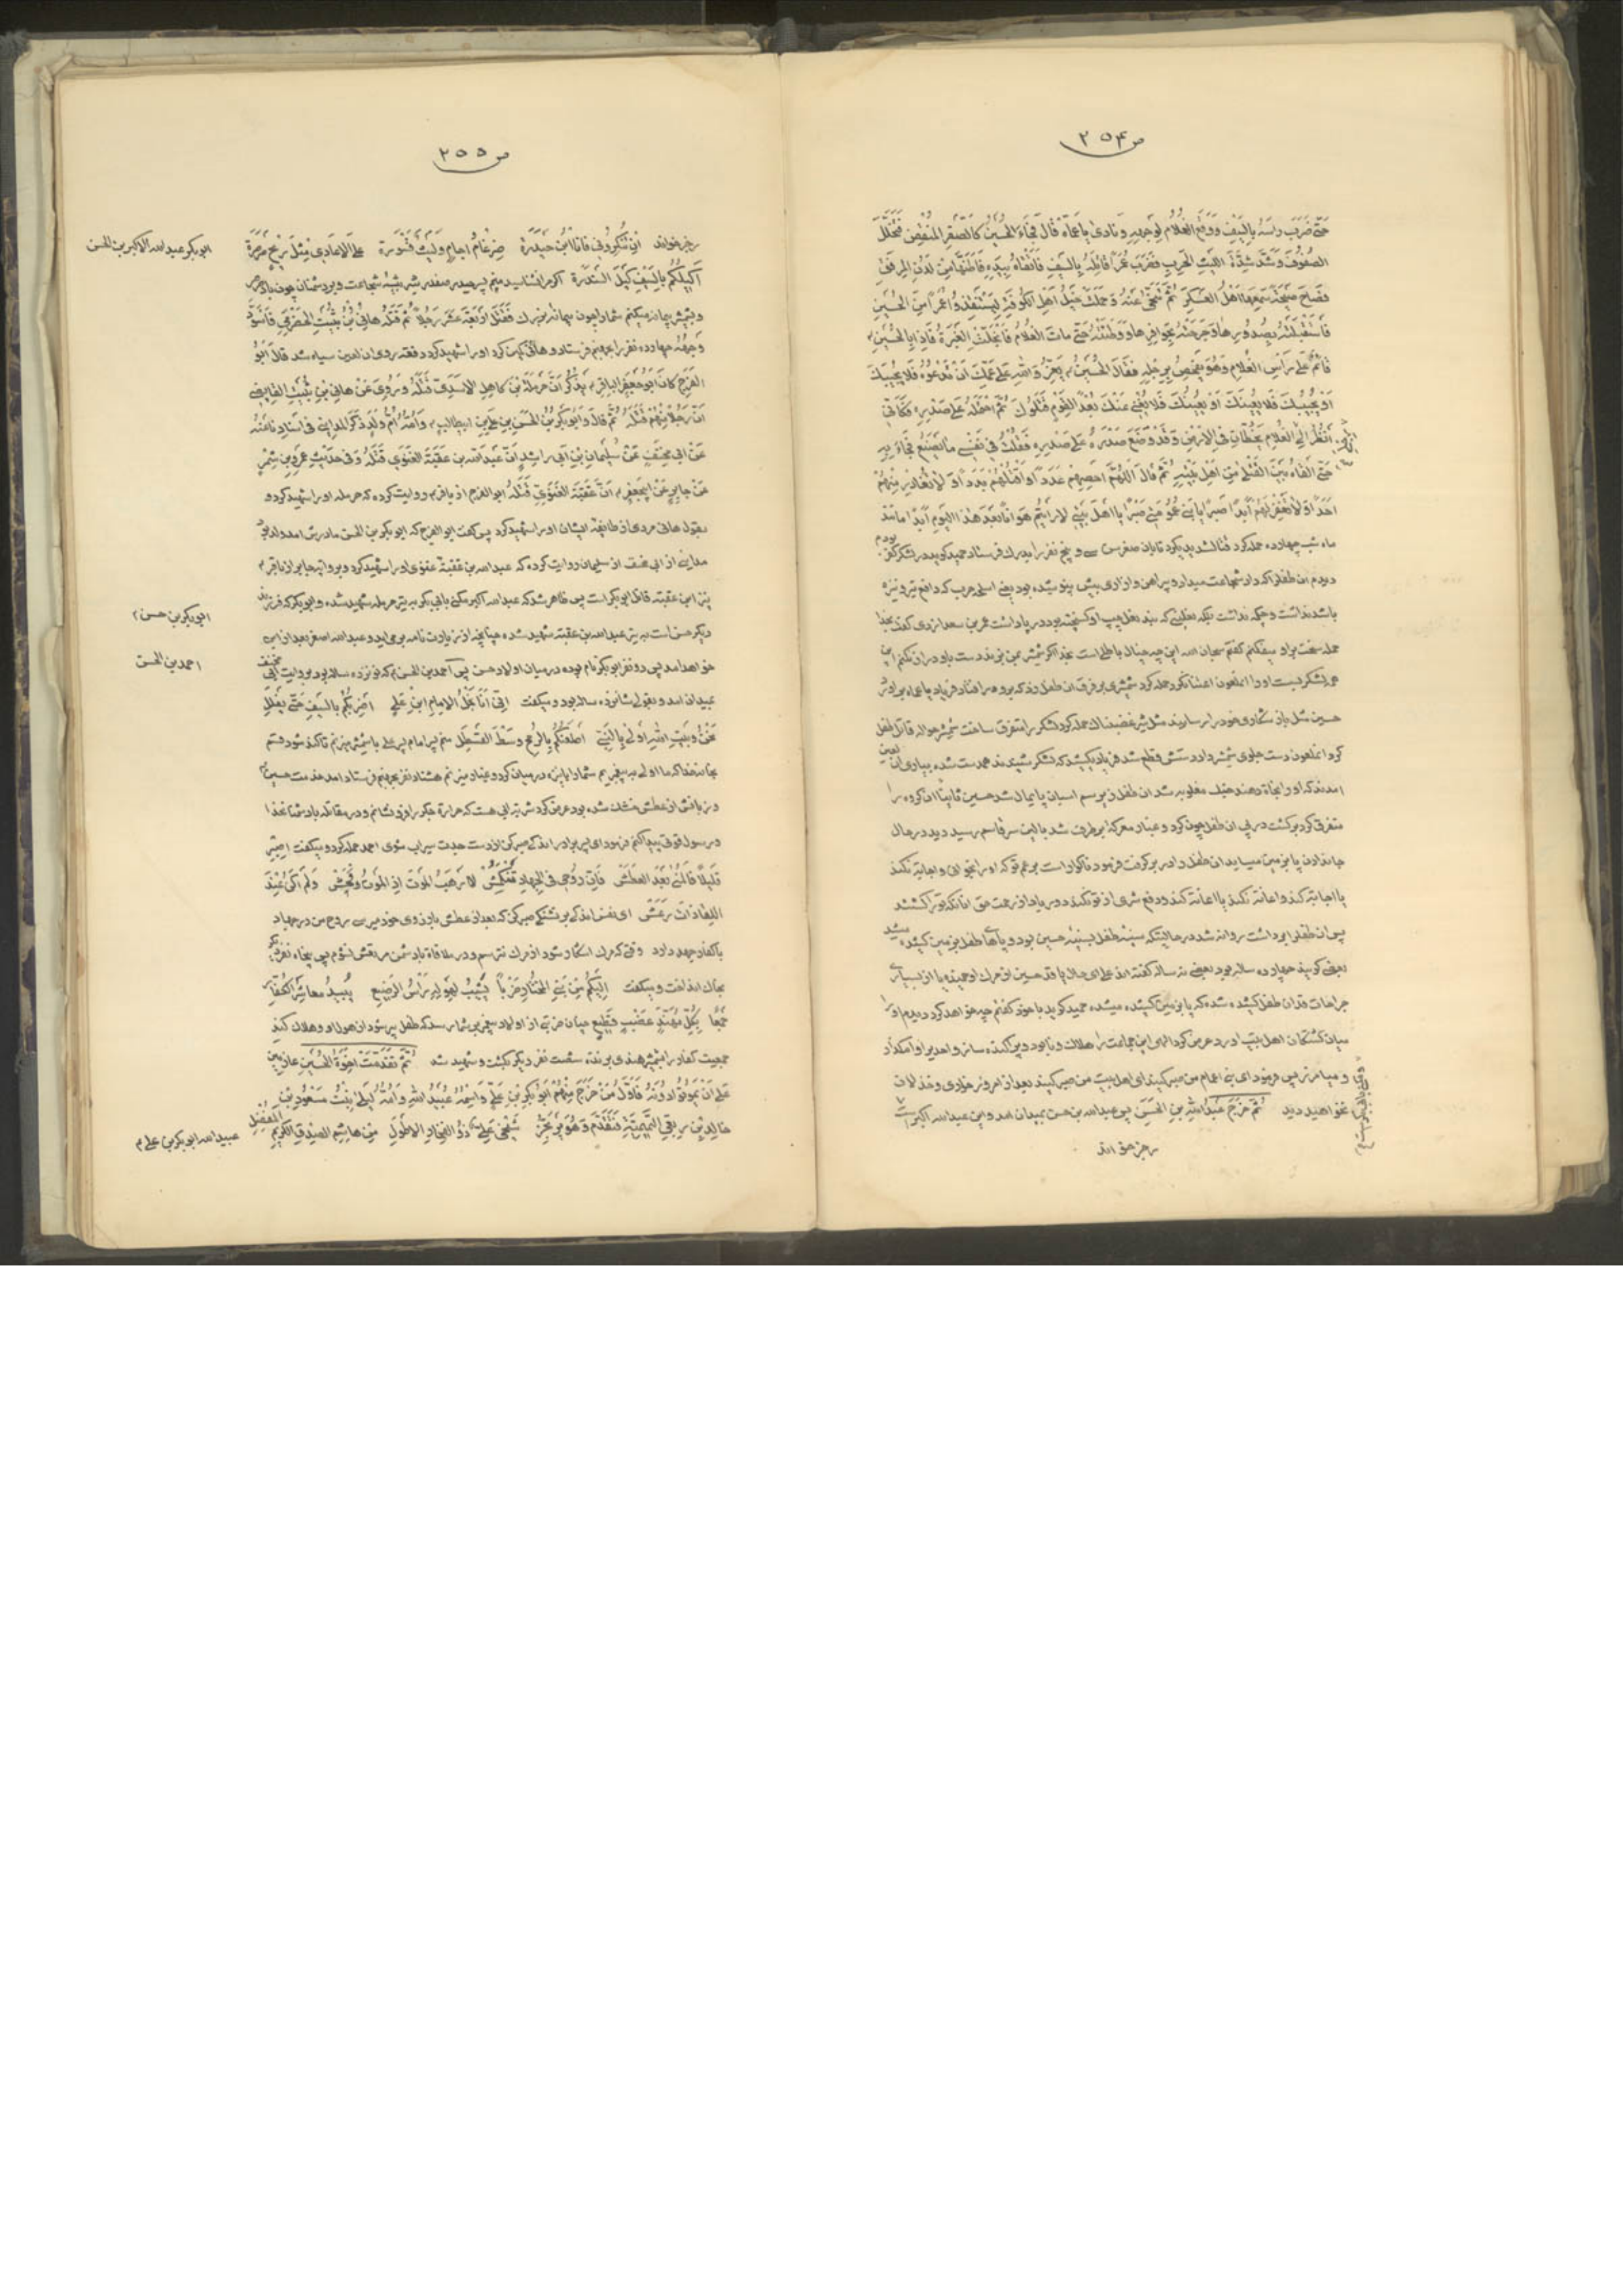 ص ٢٥۴
حَتّی ضَرَبَ رَأسَهُ بِالسَّیفِ وَوَقَعَ الغُلامُ لِوَجهِهِ وَنادی یا عَمّاه قالَ فَجاءَ الحُسَینُ کَالصَّقرِ المُنقَضِّ فَتَخَلَّلَ
الصُّفُوفَ وَشَدَّ شِدَّةَ اللَّیثِ الحَرِبِ فَضَرَبَ عُمَراً قاتِلَهُ بِالسَّیفِ فَاتَّقاهُ بِیَدِهِ فَاَطَنَّها مِن لَدُنِ المِرفَقِ
فَصاحَ صَیحَةً سَمِعَها اَهلُ العَسکَرِ ثُمَّ تَنَحّی عَنهُ وَ حَمَلَت خَیلُ اَهلِ الکُوفَةِ لِیَستَنقِذُوا عُمَراً مِنَ الحُسَینِ
فَاستَقبَلَتهُ بِصُدُورِها وَجَرَحَتهُ بِحَوافِرِها وَ وَطِئَتهُ حَتّی ماتَ الغُلامُ فَانجَلَتِ الغَبَرَةُ فَاِذا بِالحُسَینِ
قائِمٌ عَلی رَأسِ الغُلامِ وَهُوَ یَفحَصُ بِرِجلِهِ فَقالَ الحُسَینُ یَعِزُّ وَاللهِ عَلی عَمِّکَ اَن تَدعُوهُ فَلا یُجیبُکَ
اَو یُجیبُکَ فَلا یُعینُکَ اَو یُعینُکَ فَلا یُغنی عَنکَ بُعداً لِقَومٍ قَتَلُوکَ ثُمَّ احتَمَلَهُ عَلی صَدرِهِ فَکَاَنّی
اَنظُرُ اِلی رِجلَیِ الغُلامِ یَخُطّانِ فِی الاَرضِ وَقَد وَضَعَ صَدرَهُ عَلی صَدرِهِ فَقُلتُ فی نَفسی ما یَصنَعُ فَجاءَ بِهِ
حَتّی اَلقاهُ بَینَ القَتلی مِن اَهلِ بَیتِهِ ثُمَّ قالَ اَللّهُمَّ اَحصِهِم عَدَداً وَاقتُلهُم بَدَداً وَ لا تُغادِر مِنهُم
اَحَداً وَ لا تَغفِر لَهُم اَبَداً صَبراً یا بَنی عُمُومَتی صَبراً یا اَهلَ بَیتی لا رَاَیتُم هَواناً بَعدَ هذَا الیَومِ اَبَداً مانند
ماه شب چهارده حمله کرد قتال شدید بکرد تا بان صغر سن سی و پنج نفر را بدرک فرستاد حمید کوید در لشکر کوفه بودم
دیدم ان طفلرا که داد شجاعت میداد و پیراهن و ازاری بیش نپوشیده بود یعنی اسلحه حرب که دافع تیر و نیزه
باشد نداشت و چکمه نداشت بلکه نعلینی که بند نعل چپ او کسیخته بود در پا داشت عمر بن سعد ازدی کفت بخدا
حمله سخت بر او میفکنم کفتم سبحان الله این چه خیال باطلی است بخدا اکر شمشیر بمن بزند دست باو دراز نکنم این
همه لشکر بست او را اعتنا نکرد حمله کرد شمشیری بر فرق ان طفل زد که برو در افتاد فریاد یا عماه براورد
حسین مثل باز شکاری خود را رسانید مثل شیر غضبناک حمله کرد لشکر را متفرق ساخت شمشیر حواله قاتل طفل
کرد انملعون دست جلوی شمشیر داد دستش قطع شد فریاد بکشید که لشکر شنیدند همدست شده بیاری ان لعین
امدند که او را نجاة دهند جنک مغلوبه شد ان طفل زیر سم اسبان پایمال شد حسین ثانیا ان کروه را
متفرق کرد برکشت در پی ان طفل چون کرد و غبار معرکه برطرف شد ببالین سر قاسم رسید دید در حال
جاندادن پا بزمین میساید ان طفل را در بر کرفت فرمود ناکوار است بر عم تو که او را بخوانی و اجابة نکند
یا اجابة کند و اعانة نکند یا اعانة کند و دفع شری از تو نکند دور باد از رحمت حق انانکه تورا کشتند
پس ان طفلرا برداشت روانه شد در حالتیکه سینه طفل بسینه حسین بود و پاهای طفل بزمین کشیده میشد
بعضی کویند چهارده ساله بود بعضی نه ساله کفته اند علی ای حال یا قد حسین از مرک او خمیده یا از بسیاری
جراحات قد ان طفل کشیده شده که پا بزمین کشیده میشده حمید کوید با خود کفتم چه خواهد کرد دیدم او را
میان کشتکان اهل بیت اورد عرض کرد الهی این جماعت را هلاک و نابود و پراکنده ساز واحدیرا وامکذار
و میامرز پس فرمود ای بنی اعمام من صبر کنید ای اهل بیت من صبر کنید بعد از امروز خواری و خذلان
نخواهید دید ثُمَّ خَرَجَ عَبدُاللهِ بنِ الحَسَنِ پس عبدالله بن حسن بمیدان امد و این عبدالله اکبر است
رجز خواند
ص ٢٥٥
ابوبکر عبدالله الاکبر بن الحسن
رجز خواند اِن تُنکِرُونی فَاَنَا ابنُ حَیدَرَة ضِرغامُ اجامٍ وَلَیثٌ قَسوَرَة عَلَی الاَعادی مِثلَ ریحٍ صَرصَرَة
اَکیلُکُم بِالسَّیفِ کَیلَ السَّندَرَة اکر مرا نشناسید منم پسر حیدر صفدر شیر بیشه شجاعت و بر دشمنان چون باد صرصر
و بشمشیر پیمانه میکنم شمارا چون پیمانه بزرک فَقَتَلَ اَربَعَةَ عَشَرَ رَجُلاً ثُمَّ قَتَلَهُ هانِی بنُ ثُبَیتِ الحَضرَمی فَاسوَدَّ
وَجهُهُ چهارده نفر را بجهنم فرستاد و هانی کمین کرد او را شهید کرد دفعة روی ان لعین سیاه شد قالَ اَبُو
الفَرَجِ کانَ اَبُوجَعفَرٍ الباقِرِ یَذکُرُ اَنَّ حَرمَلَةَ بنَ کاهِلِ الاَسَدِیَّ قَتَلَهُ وَ رُوِیَ عَن هانِی بنِ ثُبَیتِ القابِضی
اَنَّ رَجُلاً مِنهُم قَتَلَهُ ثُمَّ قالَ وَ اَبُوبَکرِ بنُ الحَسَنِ بنِ عَلِیِّ بنِ ابیطالب وَ اُمُّهُ اُمُّ وَلَدٍ ذَکَرَ المَداینی فی اِسنادِنا عَنهُ
عَن اَبی مِخنَفٍ عَن سُلَیمانَ بنِ اَبی راشِدٍ اَنَّ عَبدَالله بن عُقبَةَ الغَنَوی قَتَلَهُ وَ فی حَدیثِ عَمرِو بنِ شِمرٍ
عَن جابِرٍ عَن اَبیجَعفَرٍ اَنَّ عُقبَةَ الغَنَوِیَّ قَتَلَهُ ابوالفرج از باقر روایت کرده که حرمله او را شهید کرد و
بقول هانی مردی از طایفه ایشان او را شهید کرد پس کفت ابوالفرج که ابوبکر بن الحسن مادرش ام ولد بود
مداینی از ابی مخنف از سلیمان روایت کرده که عبدالله بن عقبة غنوی او را شهید کرد و بروایت جابر از باقر
نیز ابن عقبه قاتل ابوبکر است پس ظاهر شد که عبدالله اکبر مکنی بابی بکر به تیر حرمله شهید شده و ابوبکر که فرزند
ابوبکر بن حسن
دیکر حسن است به تیر عبدالله بن عقبة شهید شده چنانچه از زیارت نامه برمیاید و عبدالله اصغر بعد از این
احمد بن الحسن
خواهد امد پس دو نفر ابوبکر نام بوده در میان اولاد حسن پس احمد بن الحسن که نوزده ساله بود بروایت ابی مخنف
بمیدان امد و بقولی شانزده ساله بود و میکفت اِنّی اَنَا نَجلُ الاِمامِ ابنِ عَلی اَضرِبُکُم بِالسَّیفِ حَتّی یَفلَلِ
نَحنُ وَبَیتِ اللهِ اَولی بِالنَّبی اَطعَنُکُم بِالرُّمحِ وَسطَ القَسطَلِ منم پسر امام پسر علی با شمشیر میزنم تا کند شود قسم
بخانه خدا که ما اولی به پیغمبریم شمارا با نیزه در میان کرد و غبار میزنم هشتاد نفر بجهنم فرستاد امد خدمت حسین
و زبانش از عطش خشک شده بود عرض کرد شربت ابی هست که حرارة جکر را فرو نشانم و در مقاتله با دشمنان خدا
و رسول قوتی پیدا کنم فرمود ای پسر برادر اندکی صبر کن از دست جدت سیراب شوی احمد حمله کرد و میکفت اِصبِر
قَلیلاً فَالمُنی بَعدَ العَطَش فَاِنَّ رُوحی فِی الجِهادِ تَنکَمِش لا اَرهَبُ المَوتَ اِذِ المَوتُ وَحَش وَ لَم اَکُن عِندَ
اللِّقا ذاتَ رَعَش ای نفس اندکی بر تشنکی صبر کن که بعد از عطش بارزوی خود میرسی روح من در جهاد
با کفار جهد دارد وقتی که مرک اشکار شود از مرک نترسم و در ملاقاة با دشمن مرتعش نشوم پس پنجاه نفر دیکر
بخاک انداخت و میکفت اِلَیکُم مِن بَنِی المُختارِ ضَرباً یَشیبُ لِهَولِهِ رَأسُ الرَّضیعِ یُبیدُ مَعاشِرَ الکُفّارِ
جَمعاً بِکُلِّ مُهَنَّدٍ عَضبٍ قَطیعٍ
جمعیت کفار را بشمشیر هندی برنده شصت نفر دیکر بکشت و شهید شد ثُمَّ تَقَدَّمَت اِخوَةُ الحُسَینِ عازِمینَ
عَلی اَن یَمُوتُوا دُونَهُ فَاَوَّلُ مَن خَرَجَ مِنهُم اَبُوبَکرِ بنِ عَلِیٍّ وَ اسمُهُ عُبَیدُ اللهِ وَ اُمُّهُ لَیلی بِنتُ مَسعُودِ بنِ
عبیدالله ابوبکر بن علی
خالِدِ بنِ رِبعِی التَّمیمِیَّةِ فَتَقَدَّمَ وَهُوَ یَرتَجِزُ شَیخی عَلِیٌّ ذُو الفِخارِ الاَطوَلِ مِن هاشِمِ الصِّدقِ الکَریمِ المُفضِلِ